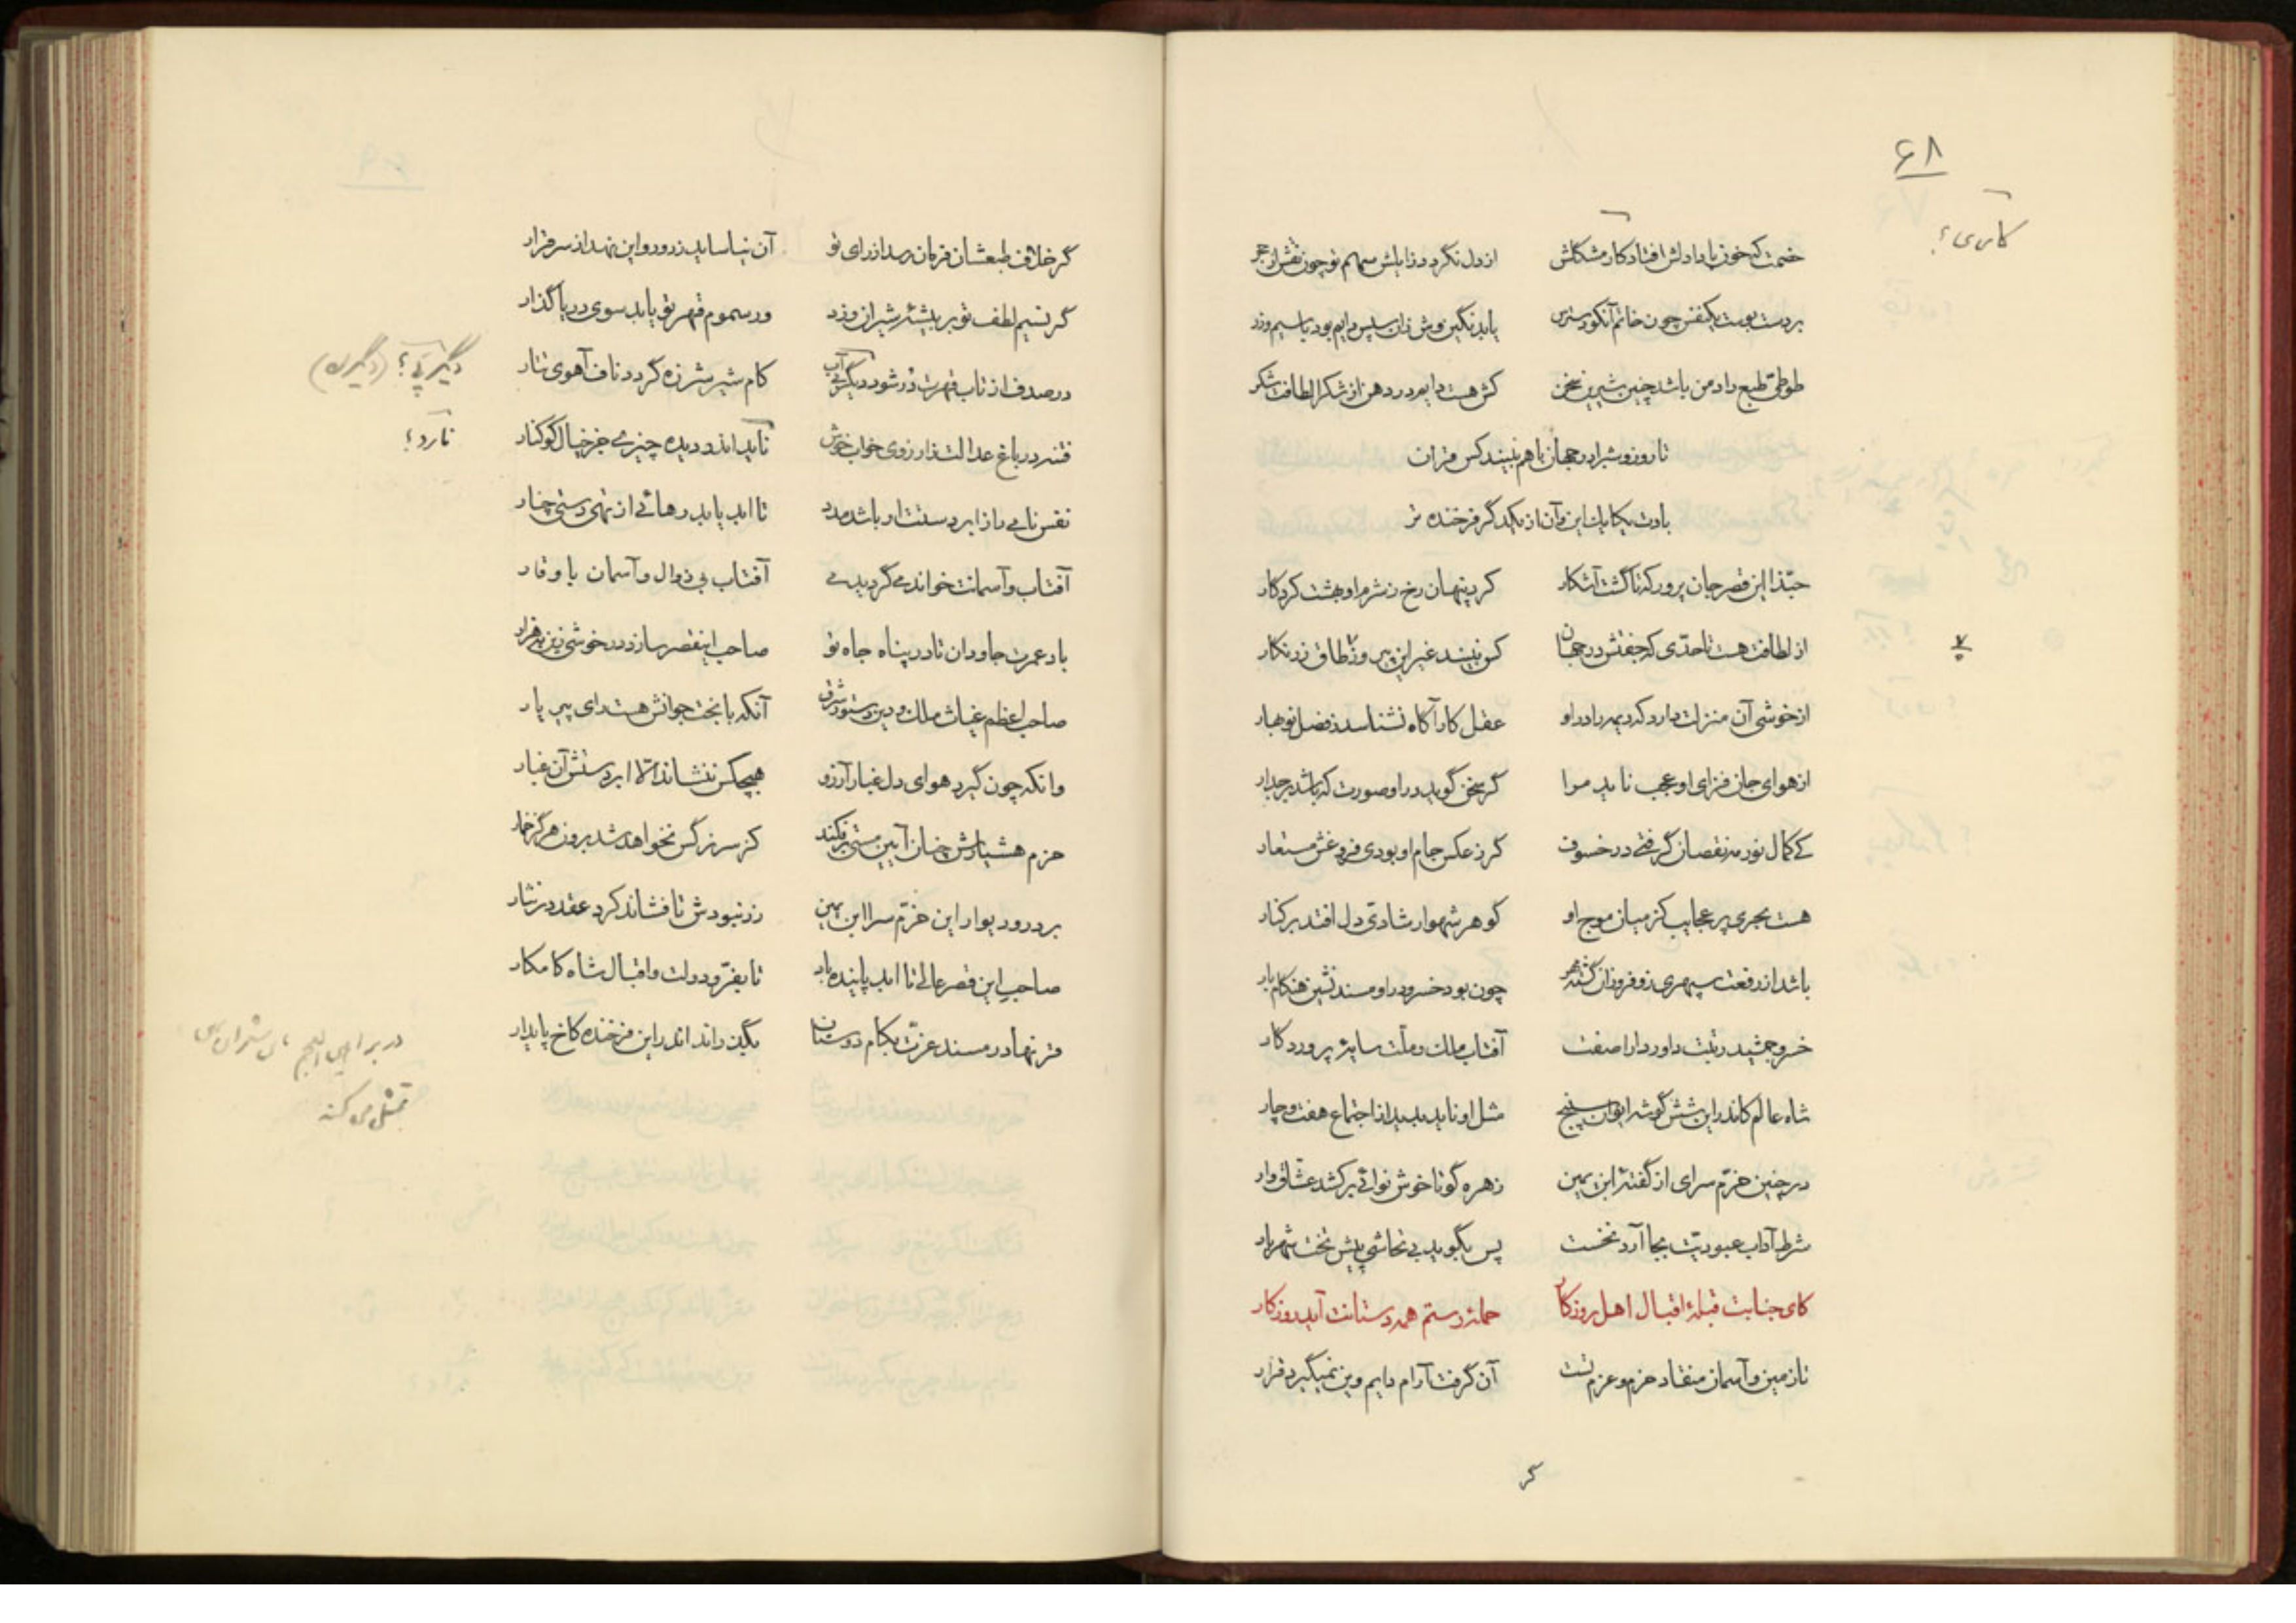 ۶۸
کاری؟
خصمت که خون باد دلش افتاد کار مشکلش از دل نگردد زایلش سهم تو چون نقش از حجر
بر دست بوست یکنفس چون خاتم آنکو دسترس یابد نگین وش زان سپس دایم بود با سیم و زر
طوطی طبع راد من باشد چنین شیرین سخن کش هست دایم در دهن از شکر الطافت شکر
تا روز و شب را در جهان با هم نبیند کس قران
بادت یکایک این و آن از یکدگر فرخنده تر
حبّذا این قصر جان پرور که تا گشت آشکار کرد پنهان رخ ز شرم او بهشت کردگار
از لطافت هست تا حدّی که جفتش در جهان کس نبیند غیر این پیروزه طاق زرنگار
از خوشی آن منزلت دارد که دیمه را در او عقل کار آگاه نشناسد ز فصل نوبهار
از هوای جان فزای او عجب ناید مرا گر سخن گوید در او صورت که باشد بر جدار
کی کمال نور مه نقصان گرفتی در خسوف گر ز عکس جام او بودی فروغش مستعار
هست بحری پر عجایب کز میان موج او گوهر شهوار شادی دل افتد بر کنار
باشد از رفعت سپهری زو فروزان گشته مهر چون بود خسرو در او مسند نشین هنگام بار
خسرو جمشید رتبت داور دارا صفت آفتاب ملک و ملّت سایهٔ پروردگار
شاه عالم کاندر این شش گوشه ایوان سپنج مثل او ناید پدید از اجتماع هفت و چار
در چنین خرّم سرای از گفتهٔ ابن یمین زهره گو تا خوش نوائی برکشد عشّاق وار
شرط آداب عبودیّت بجا آرد نخست پس بگوید بی تحاشی پیش تخت شهریار
کای جنابت قبلهٔ اقبال اهل روزگار حملهٔ رستم همه دستانت آید روز کار
تا زمین و آسمان منقاد حزم و عزم تست آن گرفت آرام دایم وین نمیگیرد قرار
گر
گر خلاف طبعشان فرمان رسد از رای تو آن نیاساید ز دور و این نهد از سر قرار
گر نسیم لطف تو بر بیشهٔ شیران وزد ور سموم قهر تو یابد سوی دریا گذار
در صدف از تاب قهرت دُر شود دیگر آب کام شیر شرزه گردد ناف آهوی تتار
دیگر پی؟ (دیگر)
فتنه در باغ عدالت ز آرزوی خواب خوش ناید اندر دیده چیزی جز خیال کوکنار
نارد؟
نفس نامی را ز ابر دستت ار باشد مدد تا ابد یابد رهائی از تهی دستی چنار
آفتاب و آسمانت خواندمی گر دیدمی آفتاب بی زوال و آسمان با وقار
باد عمرت جاودان تا در پناه جاه تو صاحب اینقصر سازد در خوشی زین به قرار
صاحب اعظم غیاث ملک و دین دستور شرق آنکه با بخت جوانش هست رای پیر یار
وانکه چون گیرد هوای دل غبار آرزو هیچکس ننشاند الّا ابر دستش آن غبار
حزم هشیارش چنان آیین مستی برفکند کز سر نرگس نخواهد شد برون هرگز خمار
بر در و دیوار این خرّم سرا ابن یمین زر نبودش تا فشاند کرد عقد در نثار
صاحب این قصر عالی تا ابد پاینده باد تا بفرّ و دولت و اقبال شاه کامکار
قرنها در مسند عزّت بکام دوستان بگذراند اندر این فرخنده کاخ پایدار